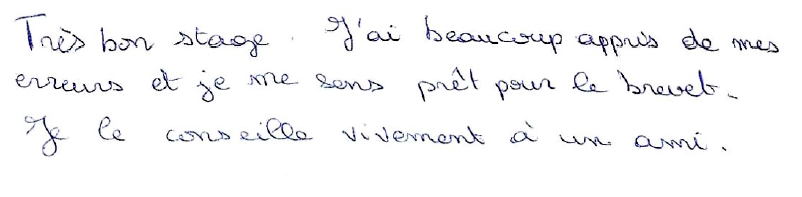 Très bon stage. J'ai beaucoup appris de mes
erreurs et je me sens prêt pour le brevet.
Je le conseille vivement à un ami.